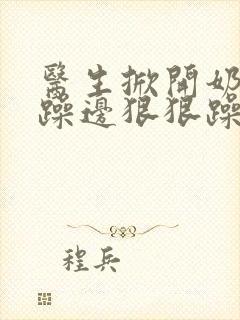 醫生掀開奶
躁邊狠狠躁
程兵